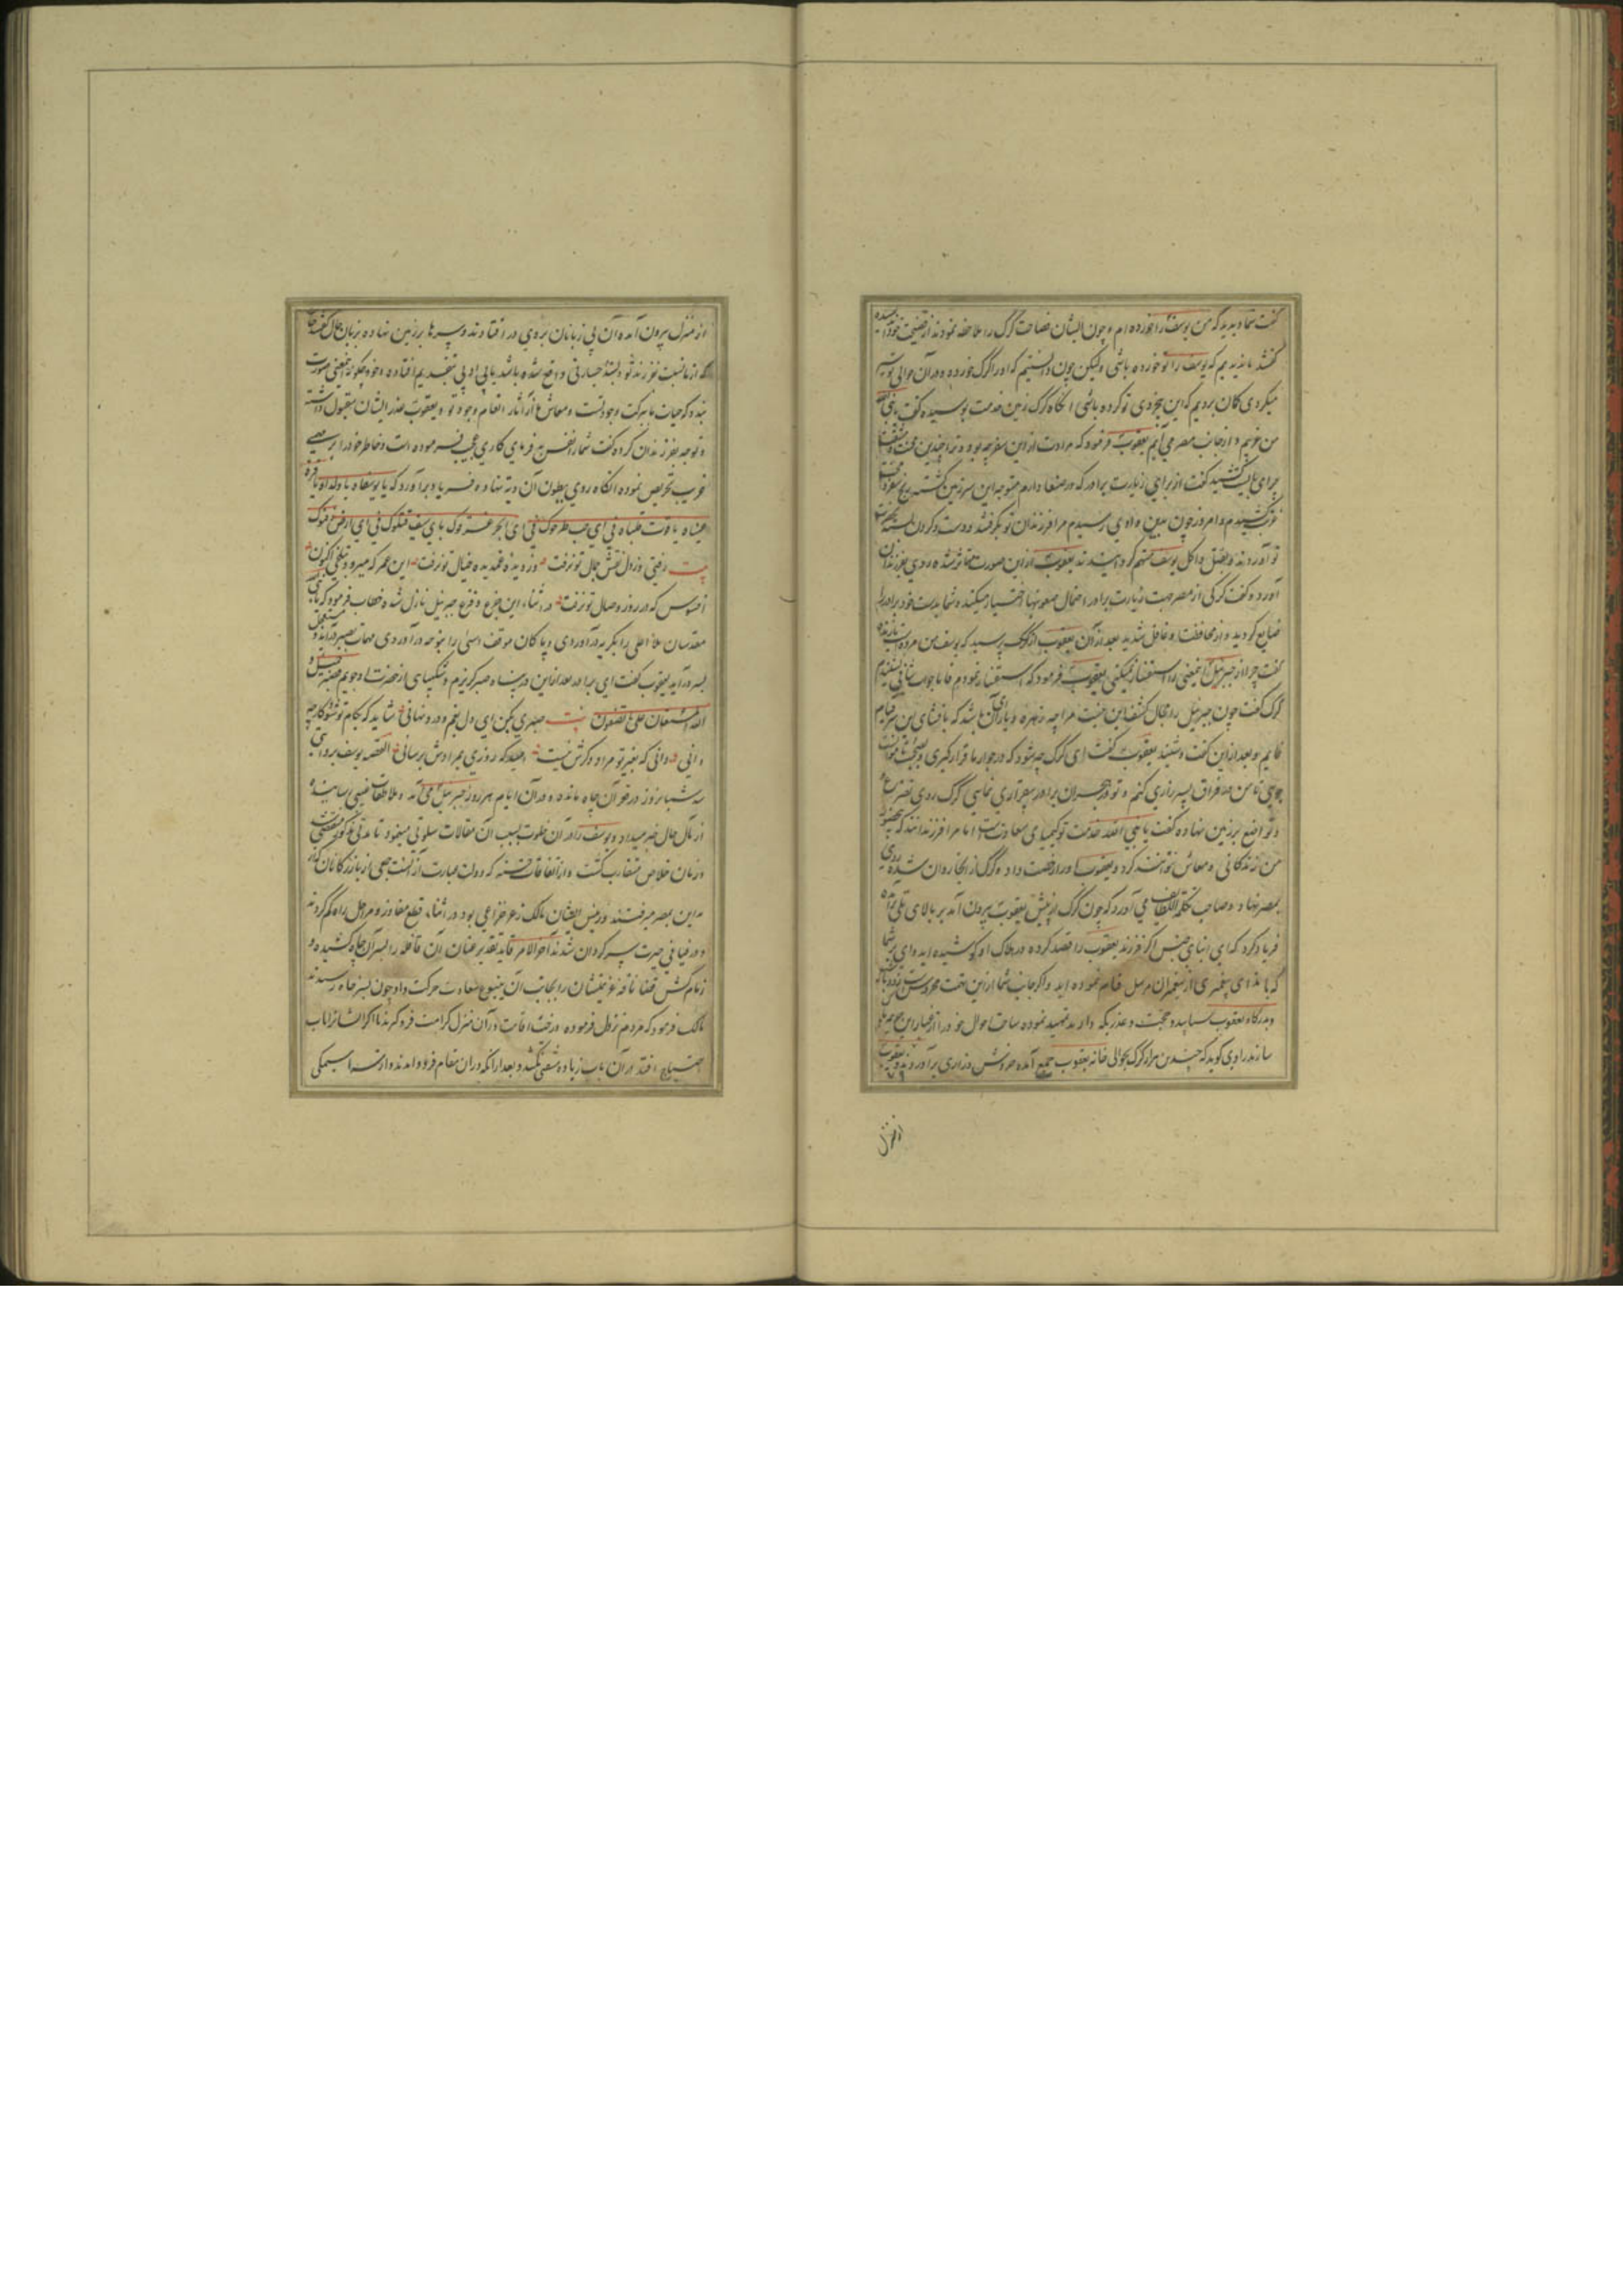 گفت شما دیدید که من یوسف را خورده ام و چون ایشان فصاحت گرگ را ملاحظه نمودند از فضیحت خود
گفتند ما ندیدیم که یوسف را تو خورده باشی ولیکن چون دانستیم که او را گرگ خورده و در آن حوالی تو
میگردی گمان بردیم که این بیخردی تو کرده باشی آنگاه گرگ زمین خدمت بوسیده گفت یا نبی الله
من غریبم و از جانب مصر می آیم یعقوب فرمود که مرادت از این سفر چه بود و ترا چندین محنت و مشقت
برای چه بایست کشید گفت از برای زیارت برادر که در صنعا دارم متوجه این سرزمین گشته رنج سفر و محنت
غربت کشیدم و امروز چون بدین وادی رسیدم مرا فرزندان تو بگرفتند و دست و گردن بسته
تو آوردند و بقتل و اکل یوسف متهم گردانیدند یعقوب از این صورت متاثر شده روی بفرزندان
آورده گفت گرگی از مصر جهت زیارت برادر احتمال صعوبتها اختیار میکند و شما بدست خود برادر را
ضایع کردید و از محافظت او غافل شدید بعد از آن یعقوب از گرگ پرسید که یوسف من مرده است یا زنده
گفت چرا از جبرئیل این معنی را استفسار نمیکنی یعقوب فرمود که استفسار نمودم فاما جواب شافی نشنیدم
گرگ گفت چون جبرئیل را مجال کشف این نیست مرا چه زهره و یارای آن باشد که بافشای این سر قیام
نمایم و بعد از این گفت و شنید یعقوب گفت ای گرگ چه شود که در جوار ما قرار گیری و بصحبت ما موانست
جویی تا من در فراق پسر زاری کنم و تو در هجران برادر بیقراری نمایی گرگ روی تضرع
و تواضع بر زمین نهاده گفت یا نبی الله خدمت تو کیمیای سعادتست اما مرا فرزندانند که بی حضور
من زندگانی و معاش نتوانند کرد و یعقوب او را رخصت داد و گرگ از آنجا روان شده روی
بمصر نهاد و صاحب تحفه اللطایف می آورد که چون گرگ از پیش یعقوب بیرون آمد بر بالای تلی برآمده
فریاد کرد که ای ابنای جنس اگر فرزند یعقوب را قصد کرده در هلاک او کوشیده اید وای بر شما
که با ندای پیغمبری از پیغمبران مرسل قیام نموده اید و اگر جانب شما از این تهمت محروس است
و بدرگاه یعقوب بیایید و حجت و عذری که دارید تمهید نموده ساحت احوال خود را از غبار این جریمه پاک
سازند راوی گوید که چندین هزار گرگ بحوالی خانه یعقوب جمع آمده خروش و زاری برآوردند و یعقوب
از منزل
از منزل بیرون آمد و آن بی زبانان بروی در افتادند و سرها بر زمین نهاده بزبان حال گفتند
که از ما نسبت بفرزند تو البته جسارتی واقع نشده باشد بایی ادبی نتقدیم افتاده و خود چگونه این معنی صورت
بندد که حیات ما ببرکت وجود تست و معاش ما از آثار انعام وجود تو و یعقوب عذر ایشان مقبول داشته
و توجه بفرزندان کرده گفت شما را نفس بد فرمای کاری عجب فرموده است و خاطر خود را بر صبر
غریب تحریص نموده آنگاه روی بطون آن وته نهاده فریاد برآورد که یا یوسفاه یا ولداه یا قرة
عیناه یا قوت قلباه فی ای جب طرحوک فی ای بحر غرقوک بای سیف قتلوک فی ای ارض دفنوک
بیت رفتی و ز دل نقش جمال تو نرفت وز دیده غمدیده خیال تو نرفت این عمر که میرود بتلخی اکنون
افسوس که در روز وصال تو نرفت در اثناء این جزع و فزع جبرئیل نازل شده خطاب فرمود که یا نبی
مقدسان ملا اعلی را بگریه درآوردی و پاکان موقف اسنی را بنوحه درآوردی مهمات بصبر درآید و مستعجل
بسر درآید یعقوب گفت ای برادر بعد از این در پناه صبر گریزم و شکیبایی از حضرت او جویم فصبر جمیل و
الله المستعان علی ما تصفون بیت صبری بکن ای دل بغم و درد نهانی شاید که بکام تو شود کار چه
دانی دانی که بغیر تو مراد دگرش نیست امید که روزی بمرادش برسانی القصه یوسف بروایتی
سه شبانروز در قعر آن چاه مانده و در آن ایام هر روز جبرئیل می آمد و ملاطفات غیبی رسانیده
از مآل حال خبر میداد و یوسف را در آن خلوت بسبب آن مقالات سلوتی میفمود تا مدتی مذکور منقضی گشت
و زمان خلاص متقارب گشت و از اتفاقات حسنه که دولت عبارت از آنست جمعی از بازرگانان که از
مداین بمصر میرفتند و رئیس ایشان مالک بن ذعر خزاعی بود در اثناء قطع مفاوز و مراحل راه گم کردند
و در فیافی حیرت سرگردان شدند آخرالامر قاید تقدیر عنان آن قافله را بسر آن چاه کشیده و
زمام کش قضا ناقه عزیمتشان را بجانب آن ینبوع سعادت حرکت داد چون بسر چاه رسیدند
مالک فرمود که مردم نزول فرموده رخت اقامت در آن منزل کرامت فرو گیرند تا اگر ایشانرا باب
احتیاج افتد از آن باب زیاده مشقتی نکشند و بعد از آنکه در آن مقام فرود آمدند وارسته